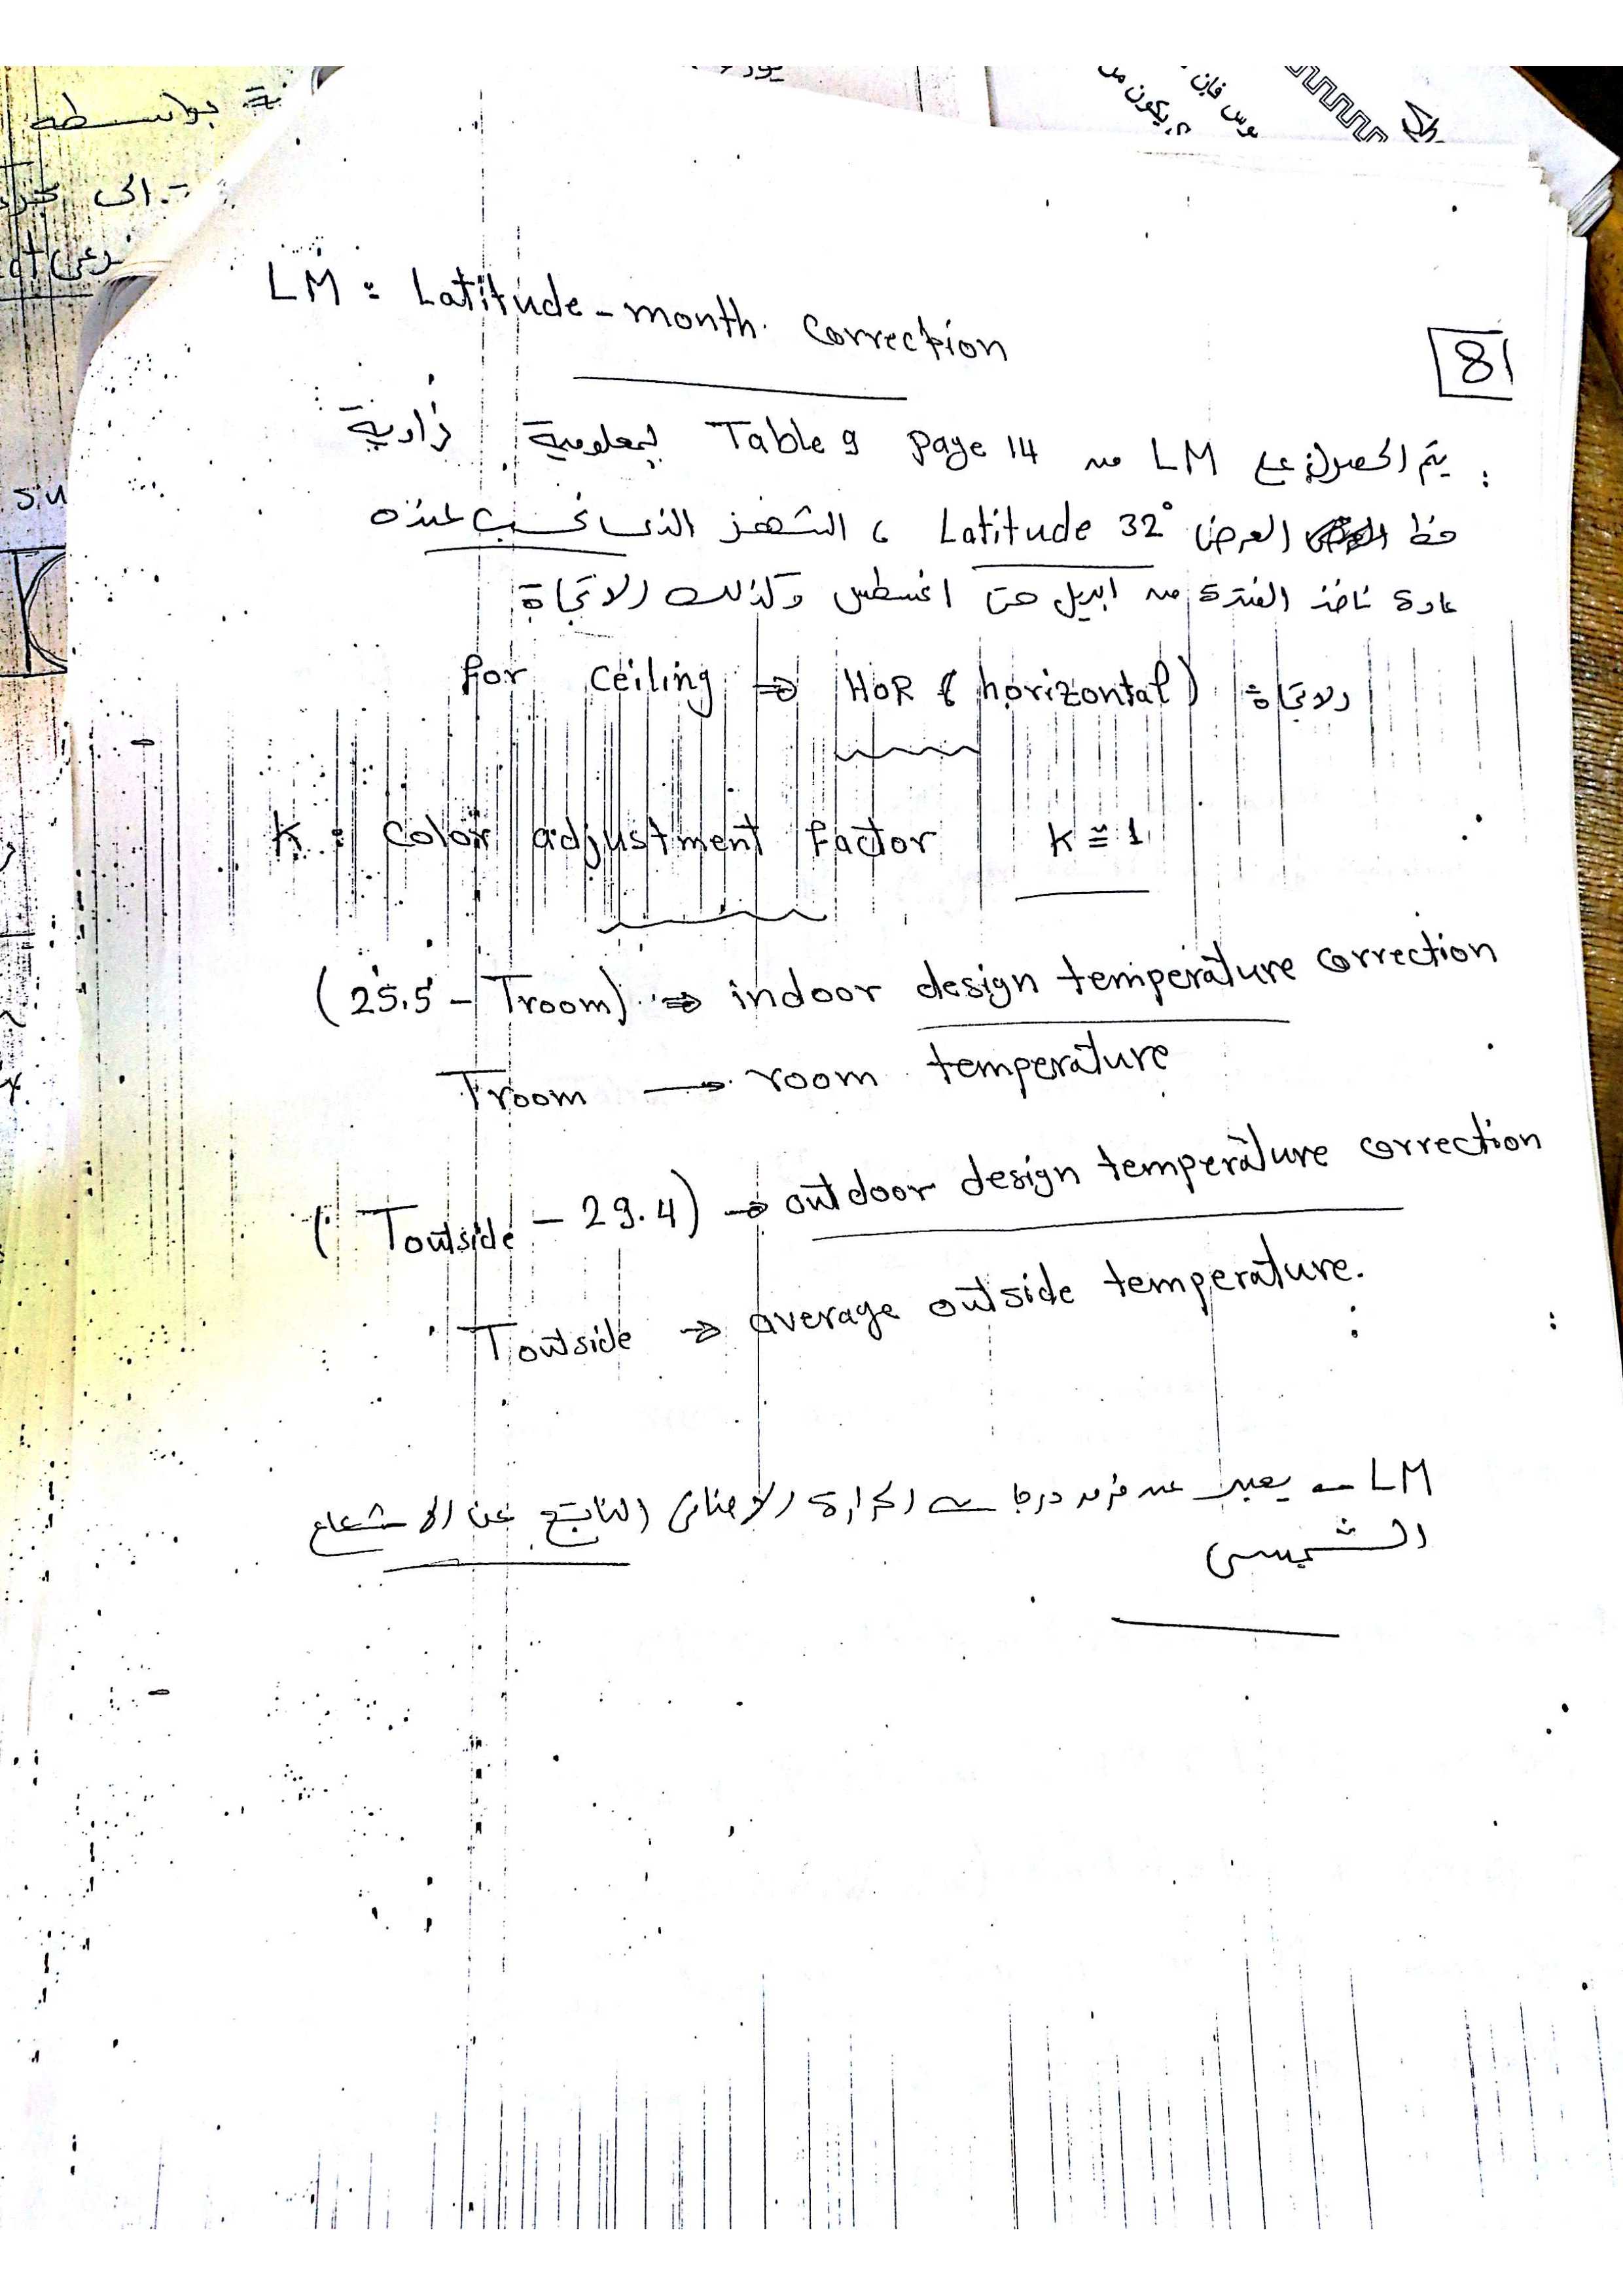 LM : Latitude-month correction
81
يتم الحصول على LM من Table 9 page 14 بمعلومية زاوية
خط العرض Latitude 32° ، الشهر الذى نحسب عنده
عادة ناخذ الفترة من ابريل حتى اغسطس وكذلك الاتجاة
for ceiling ⇒ HOR (horizontal) الاتجاة
K : color adjustment factor K ≅ 1
(25.5 - Troom) ⇒ indoor design temperature correction
Troom → room temperature
(Toutside - 29.4) → outdoor design temperature correction
Toutside → average outside temperature.
LM → يعبر عن فرق درجات الحرارة الاضافى الناتج عن الاشعاع
الشمسى
بواسطه
الى
su
وس فإن
يكون